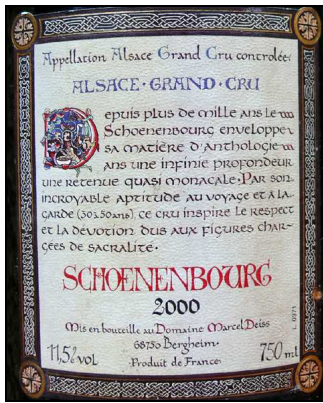 Appellation Alsace Grand Cru controlée
ALSACE · GRAND · CRU
Depuis plus de mille ans le
Schoenenbourg enveloppe
sa matière d'anthologie
dans une infinie profondeur
une retenue quasi monacale. Par son
incroyable aptitude au voyage et à la
garde (30 à 50 ans), ce cru inspire le respect
et la dévotion dus aux figures char-
gées de sacralité.
SCHOENENBOURG
2000
Mis en bouteille au Domaine Marcel Deiss
68750 Bergheim
11,5% vol
Produit de France
750 ml